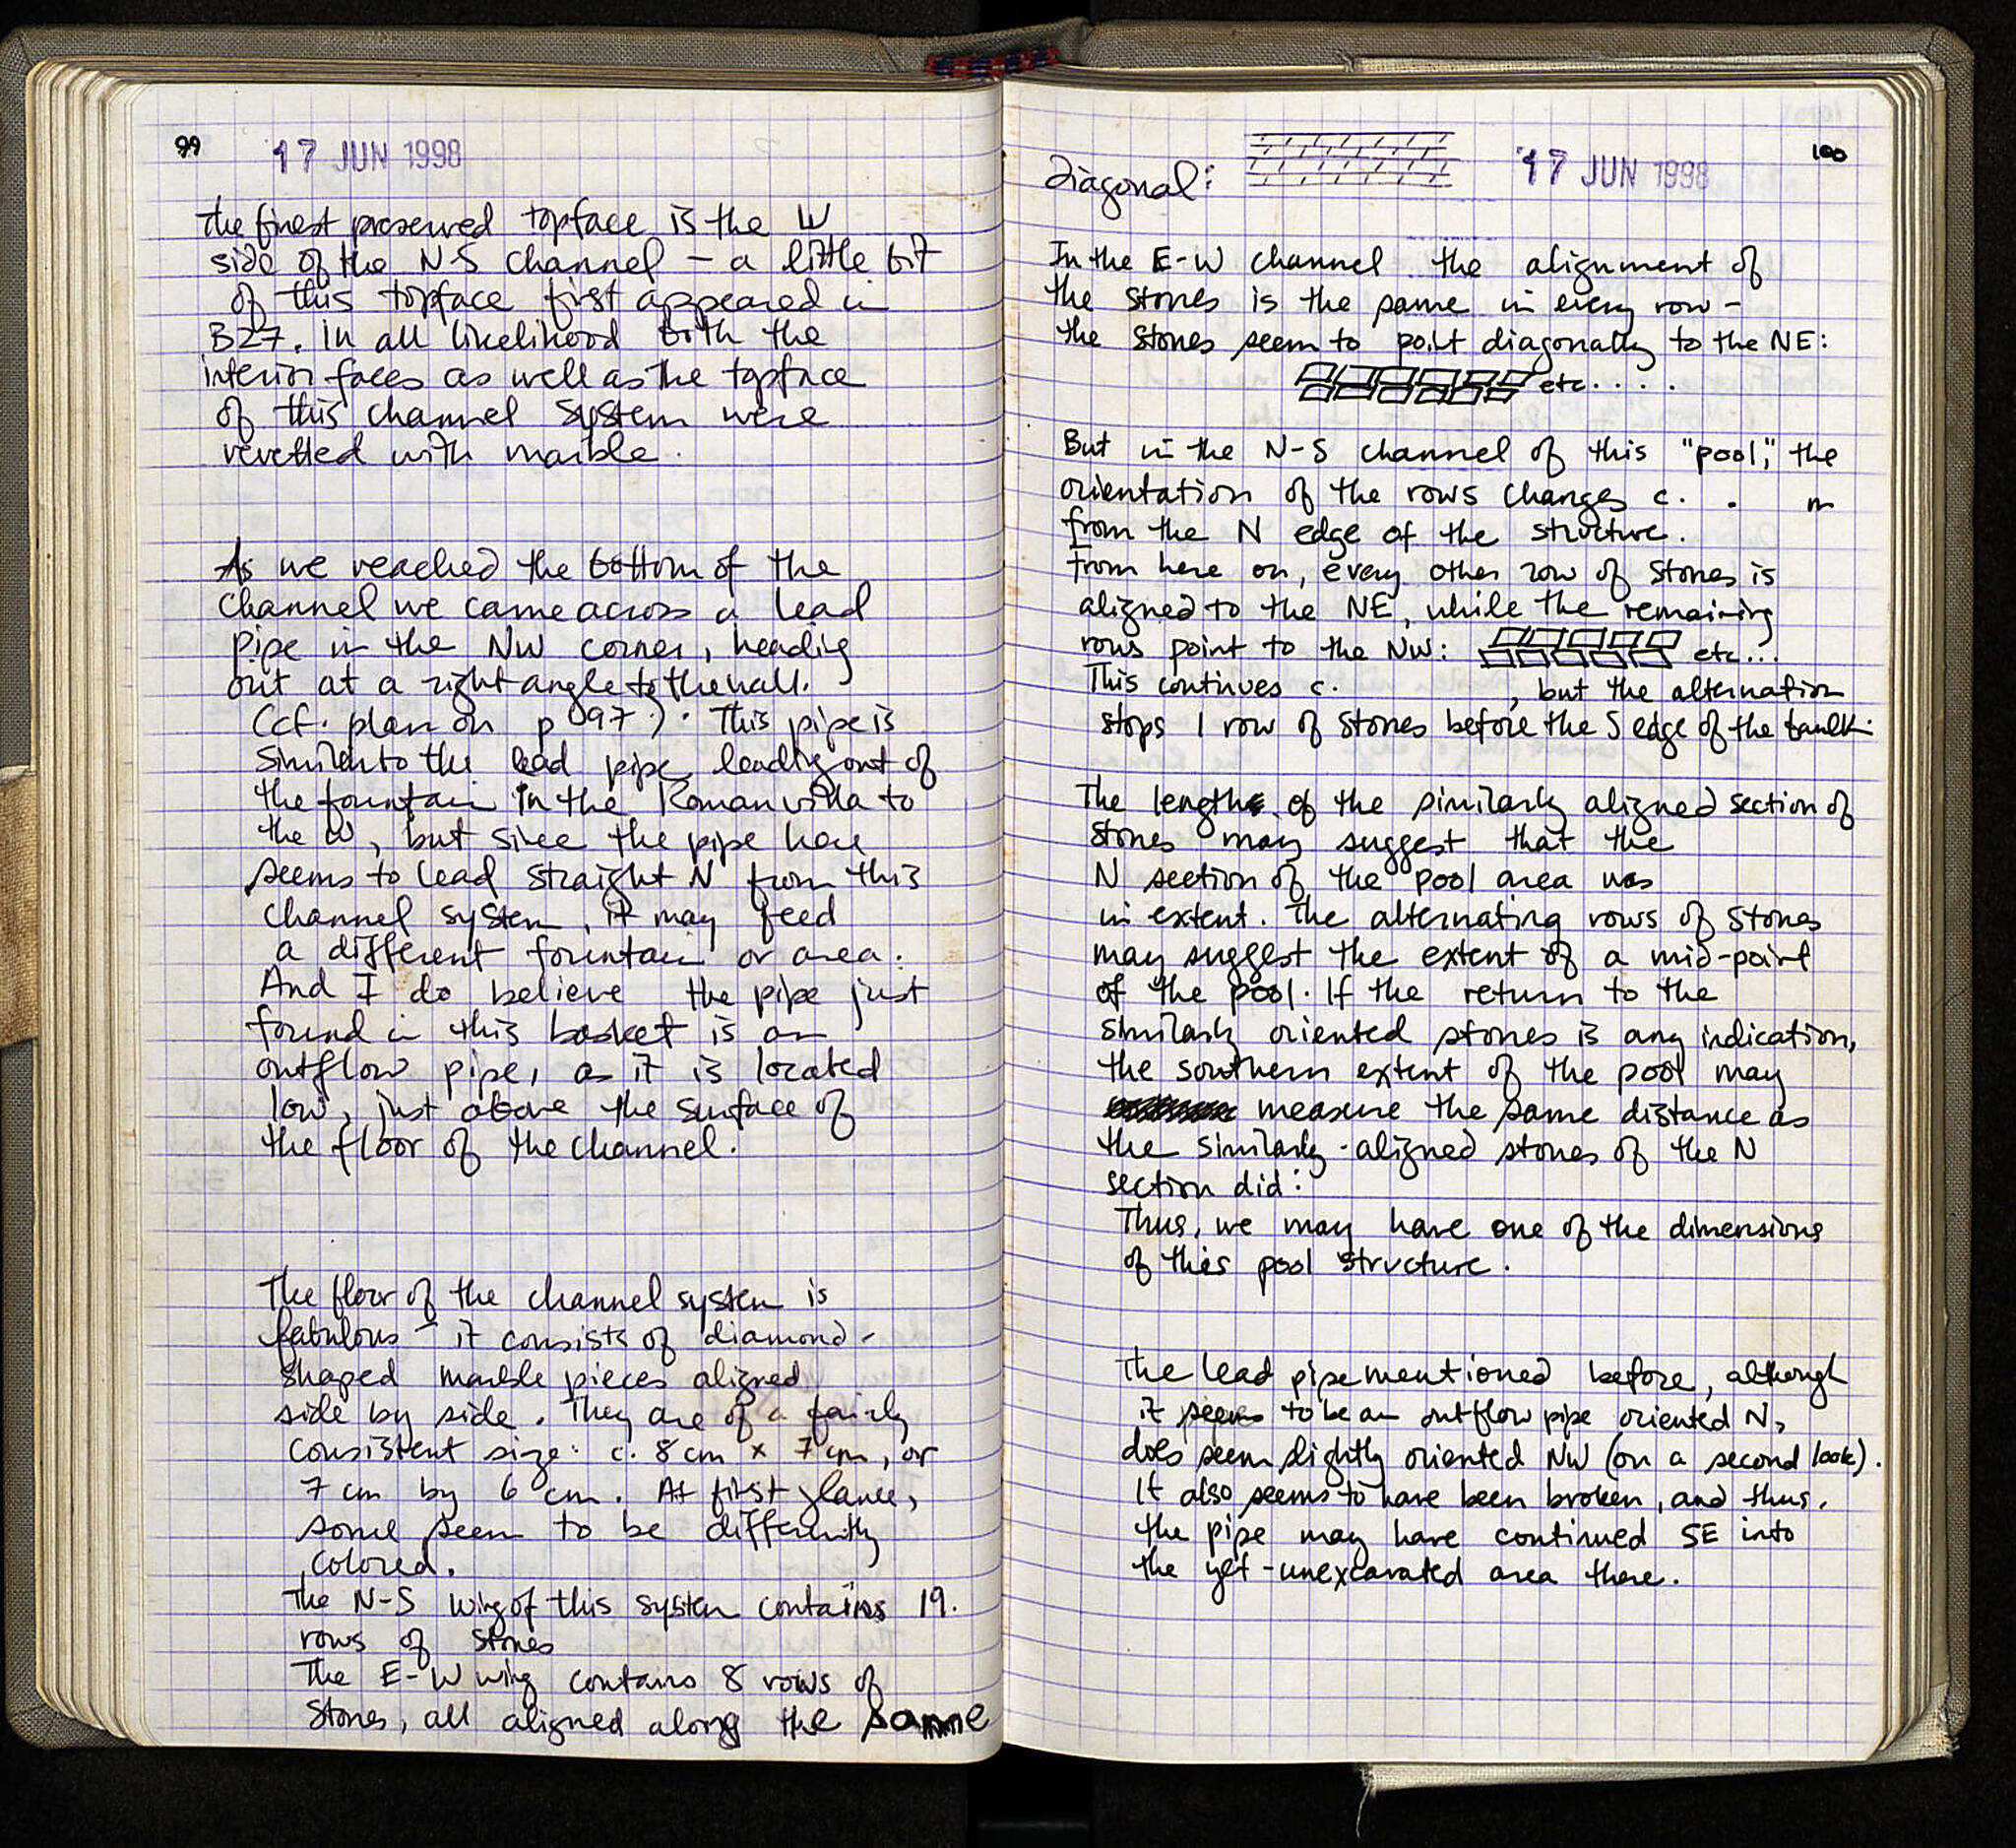 99
17 JUN 1998
the finest preserved topface is the W
side of the N-S channel - a little bit
of this topface first appeared in
B27. In all likelihood both the
interior faces as well as the topface
of this channel system were
revetted with marble.
As we reached the bottom of the
channel we came across a lead
pipe in the NW corner, heading
out at a right angle to the wall.
(cf. plan on p 97). This pipe is
similar to the lead pipe leading out of
the fountain in the Roman villa to
the W, but since the pipe here
seems to lead straight N from this
channel system, it may feed
a different fountain or area.
And I do believe the pipe just
found in this basket is an
outflow pipe, as it is located
low, just above the surface of
the floor of the channel.
The floor of the channel system is
fabulous - it consists of diamond-
shaped marble pieces aligned
side by side. They are of a fairly
consistent size: c. 8 cm x 7 cm, or
7 cm by 6 cm. At first glance,
some seem to be differently
colored.
The N-S wing of this system contains 19.
rows of stones
The E-W wing contains 8 rows of
stones, all aligned along the same
100
17 JUN 1998
diagonal:
In the E-W channel the alignment of
the stones is the same in every row -
the stones seem to point diagonally to the NE:
etc....
But in the N-S channel of this "pool", the
orientation of the rows changes c. . m
from the N edge of the structure.
From here on, every other row of stones is
aligned to the NE, while the remaining
rows point to the NW: etc...
This continues c. , but the alternation
stops 1 row of stones before the S edge of the baulk.
The length of the similarly aligned section of
stones may suggest that the
N section of the pool area was
in extent. The alternating rows of stones
may suggest the extent of a mid-point
of the pool. If the return to the
similarly oriented stones is any indication,
the southern extent of the pool may
measure the same distance as
the similarly-aligned stones of the N
section did:
Thus, we may have one of the dimensions
of this pool structure.
The lead pipe mentioned before, although
it seems to be an outflow pipe oriented N,
does seem slightly oriented NW (on a second look).
It also seems to have been broken, and thus,
the pipe may have continued SE into
the yet-unexcavated area there.